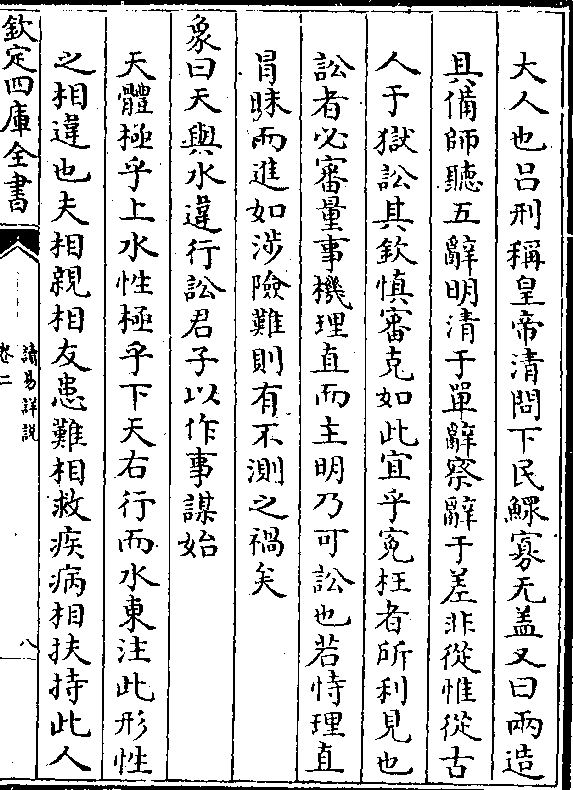 大人也呂刑稱皇帝清問下民鰥寡无盖又曰兩造
具備師聽五辭明清于單辭察辭于差非從惟從古
人于獄訟其欽慎審克如此宜乎寃枉者所利見也
訟者必審量事機理直而主明乃可訟也若恃理直
冒昧而進如涉險難則有不測之禍矣
象曰天與水違行訟君子以作事謀始
天體極乎上水性極乎下天右行而水東注此形性
之相違也夫相親相友患難相救疾病相扶持此人
欽定四庫全書
讀易詳說
卷二
八